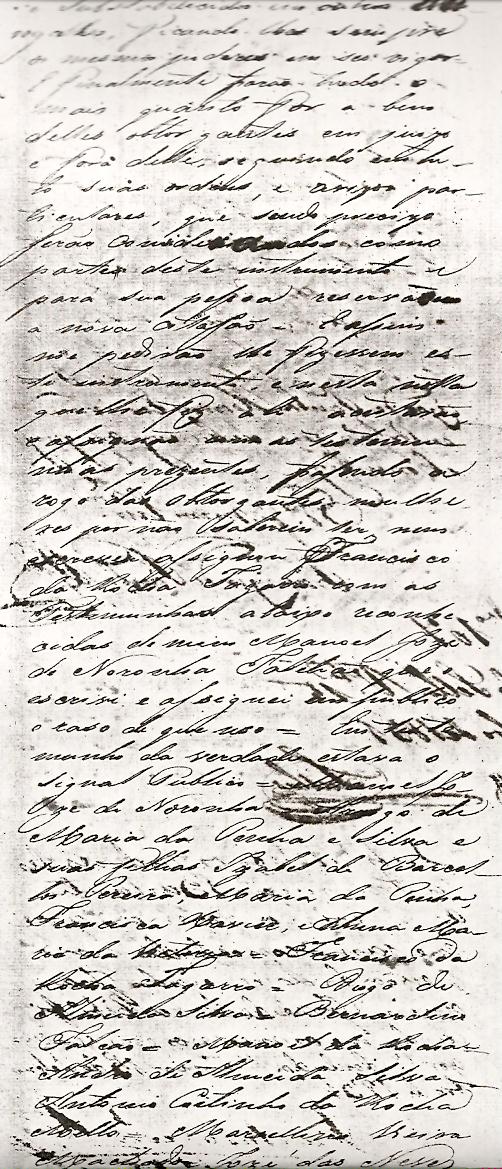 e Substabelecidos em outros
ficando lhes sempre
o mesmo poderes em seo vigor
E finalmente farão tudo o
mais quanto for a bem
delles obtorgantes em juizo
e fora delle, seguindo em tu-
do suas ordens, e avizos par-
ticulares, que sendo precizo
serão considerados como
parte deste instrumento e
para sua pessoa reservão
a nova citassão = E assim
me pedirão lhe fizessem es-
te instrumento, e nesta nota
que lhe fiz e li aceitarão
e assignão com as testemu-
nhas prezentes,
rogo das obtorgantes mulhe-
res por não saberem ler nem
escrever assignou Francisco
da Rocha com as
Testemunhas abaixo reconhe-
cidas de mim Manoel Joze
de Noronha que o
escrevi e assignei em publico
e razo de que uzo = Em teste-
munho da verdade estava o
signal Publico = Manoel Jo
oze de Noronha = Rogo de
Maria da Penha e Silva e
suas filhas Izabel de Barcel-
los Pereira, Maria da Penha,
Francisca Xavier, e Anna Ma-
ria da = Francisco da
Rocha = Rogo de
Almeida Silva = Bernardino
Falcão = Manoel da Rocha =
André de Almeida Silva
Antonio Coitinho da Rocha
Mello = Marcellino Vieira
Machado = Joze das Neves